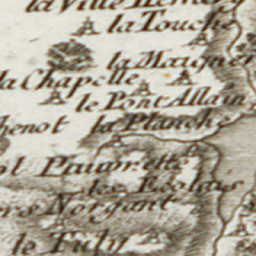 la Ville
la Touche
la Maigner
la Chapelle
le Pont Allain
henot la Planch
Pauorette
les Ecoluis
ers Norgant
le Fuly